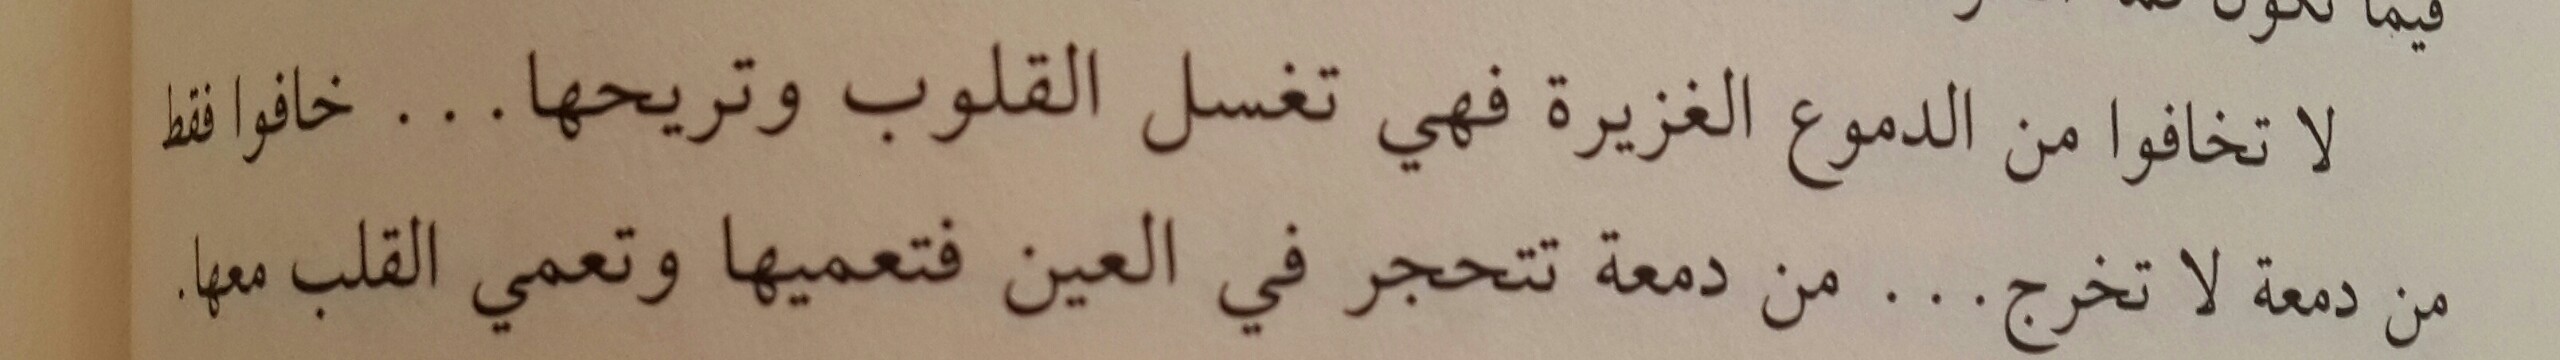 فيما
لا تخافوا من الدموع الغزيرة فهي تغسل القلوب وتريحها... خافوا فقط
من دمعة لا تخرج... من دمعة تتحجر في العين فتعميها وتعمي القلب معها.